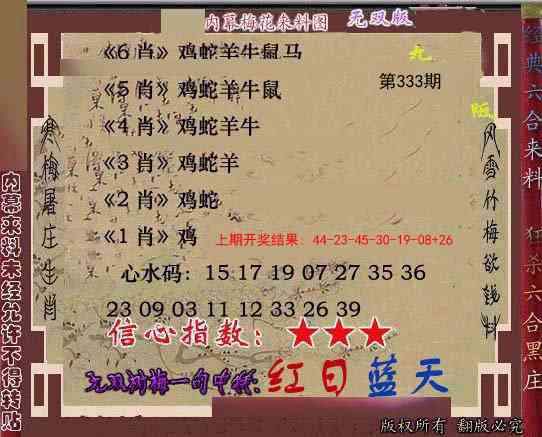 内幕梅花来料图 无双版
《6 肖》鸡蛇羊牛鼠马
《5 肖》鸡蛇羊牛鼠
第333期
《4 肖》鸡蛇羊牛
《3 肖》鸡蛇羊
《2 肖》鸡蛇
《1 肖》鸡
上期开奖结果：44-23-45-30-19-08+26
心水码：15 17 19 07 27 35 36
23 09 03 11 12 33 26 39
信心指数：★★★
红日 蓝天
版权所有 翻版必究
内幕来料未经允许不得转贴
寒梅屠庄生肖
风雪竹梅欲钱料
经典六合来料
狂杀六合黑庄